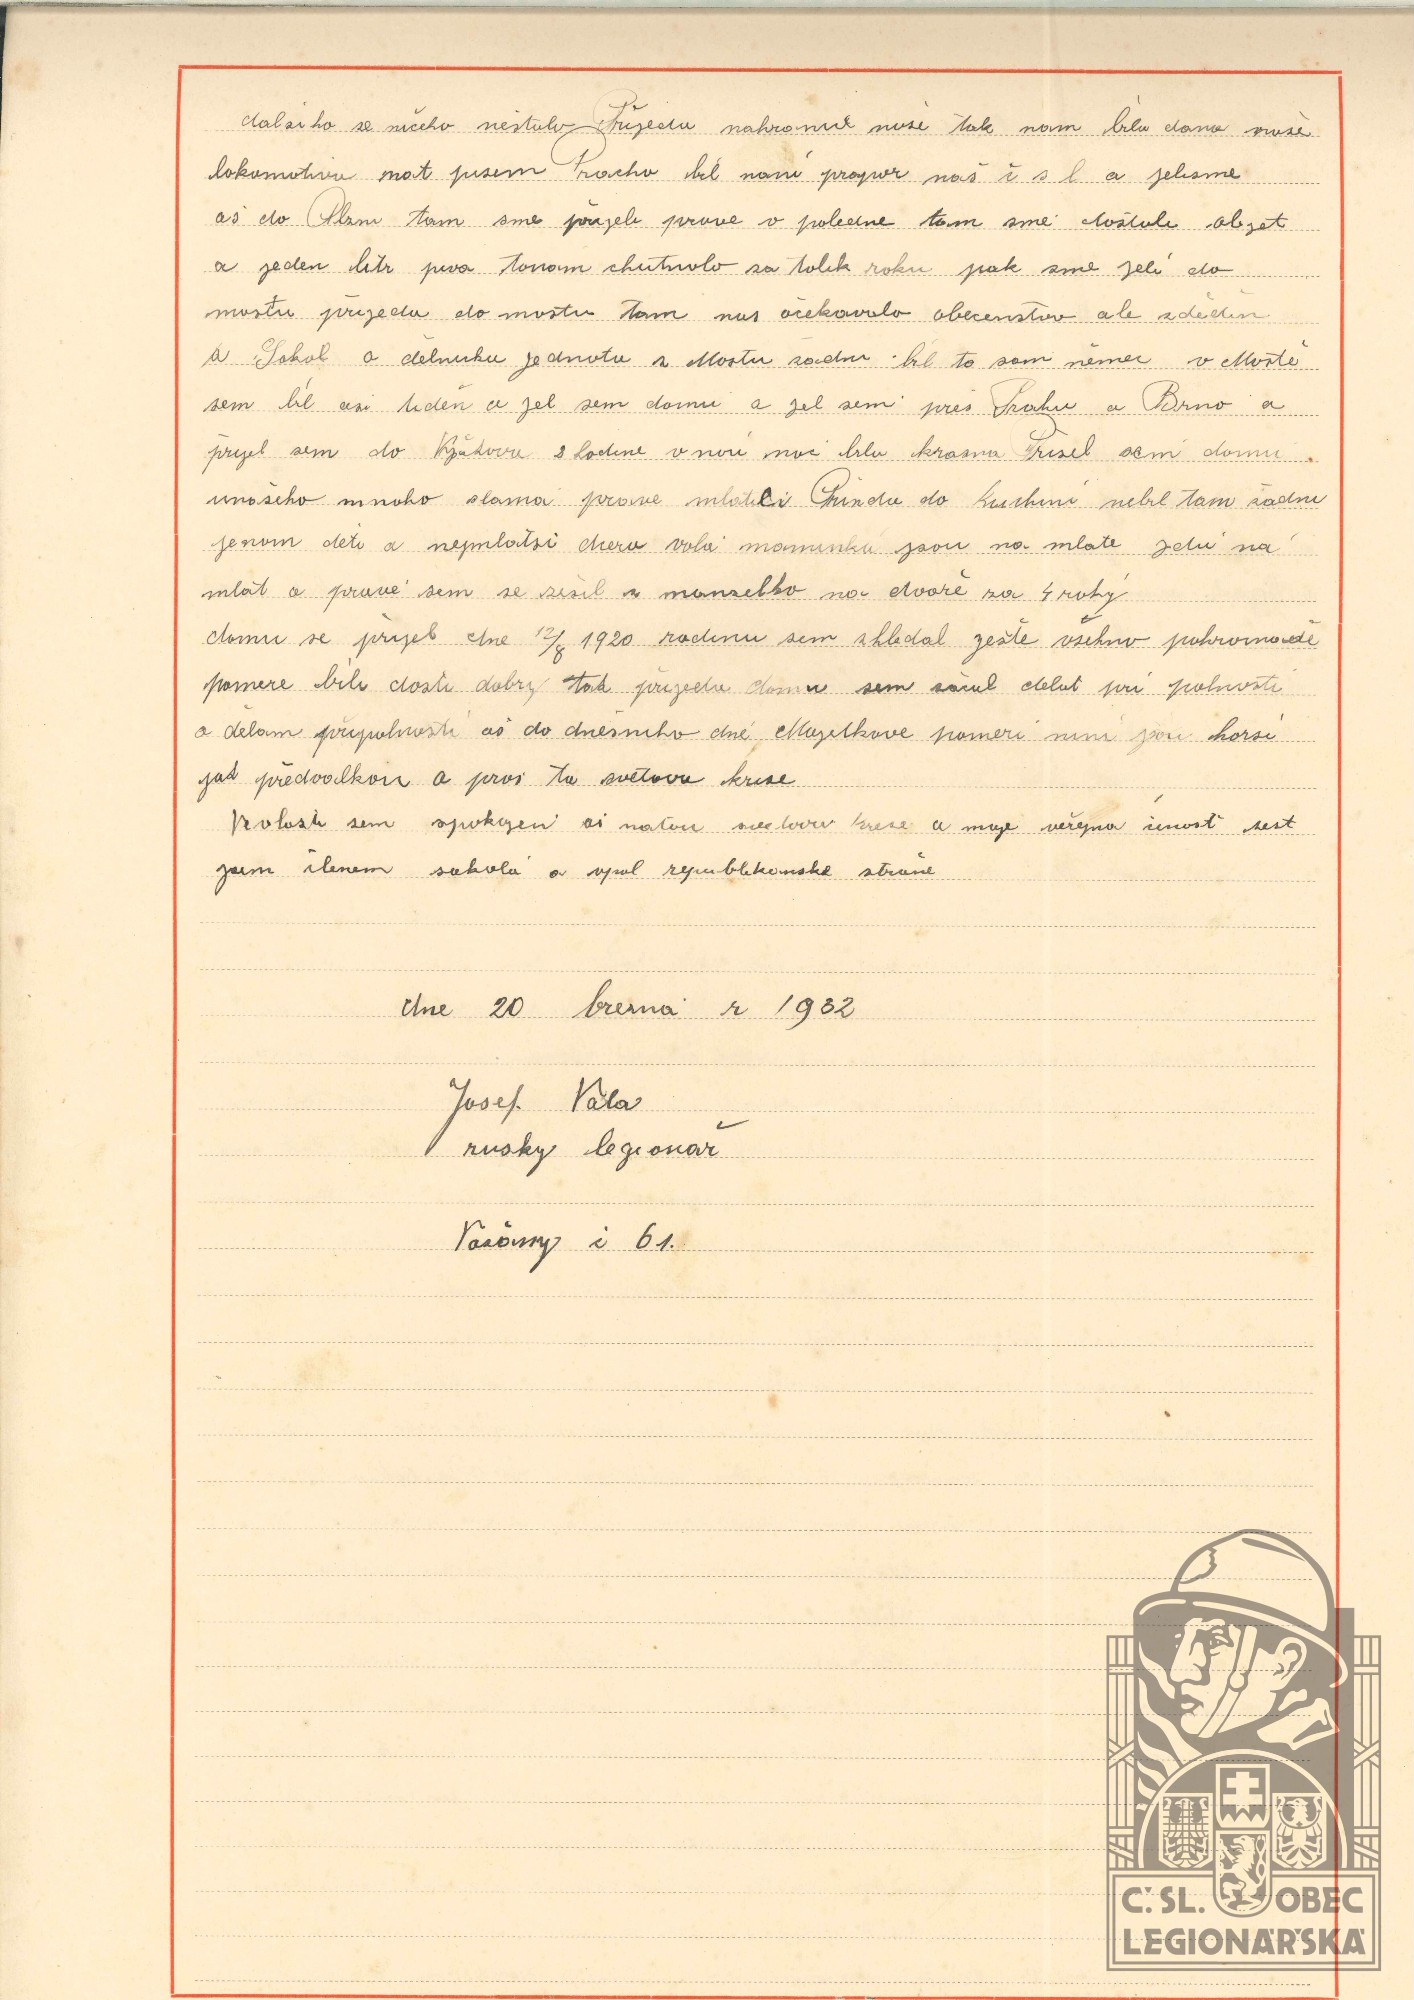 dalsiho se ničeho nestalo Přijedu nahranice naše tak nam bila dana naše
lokomotiva mat jmsem Praha bil nani prapor naš č s l a jelisme
aš do Plzni tam sme přijeli prave v poledne tam sme dostali objet
a jeden litr piva tonam chutnalo za tolik roku pak sme jeli do
mostu přijedu do mostu tam nas očekavalo obecenstvo ale z dědin
a Sokol a dělnicka jednota z Mostu žadni bil to sam němec v Mostě
sem bil asi tiden a jel sem domu a jel sem přes Prahu a Brno a
přijel sem do Kyjakova 2 hodine v noci noc bila krasna Prisel sem domu
unašeho mnoho slama prave mlatili Přindu do kuchini nebil tam žadni
jenom děti a nejmlatsi dcera vola maminka jsou na mlate jdu na
mlat a pravě sem se sešel z manzelko na dvoře za 4 roky
domu se přijel dne 12/8 1920 rodinu sem shledal ješte všehno pohromadě
pomere bili dosti dobry tak přijedu domu sem začal delat při polnosti
a dělam připolnosti aš do dnešniho dně Majetkove pomeri nini jsou horsi
jak předvalkou a provi ta světova krise
Vcelosti sem spokojeni až natou svetovu krese a moje veřejna činost jest
jsem členem sokola a spol republikanske straně
dne 20 brezna r 1932
Josef Vala
rusky legionář
Vacěnovy č 61.
Č. SL. OBEC
LEGIONÁŘSKÁ